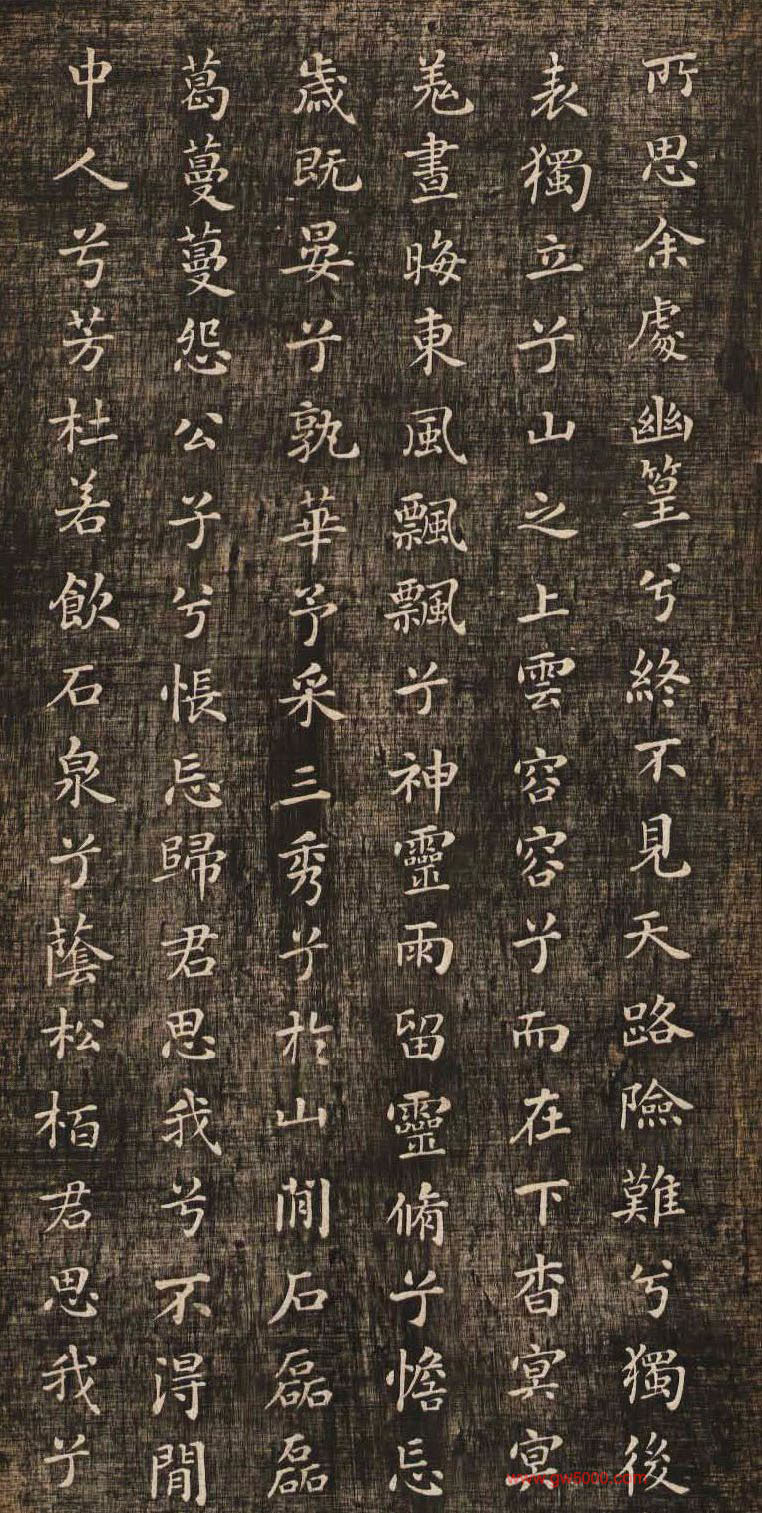 所思余處幽篁兮終不見天路險難兮獨後
表獨立兮山之上雲容容兮而在下杳冥冥
羌晝晦東風飄飄兮神靈雨留靈脩兮憺忘
歲既晏兮孰華予采三秀兮於山閒石磊磊
葛蔓蔓怨公子兮悵忘歸君思我兮不得閒
中人兮芳杜若飲石泉兮蔭松栢君思我兮
www.gw5000.com